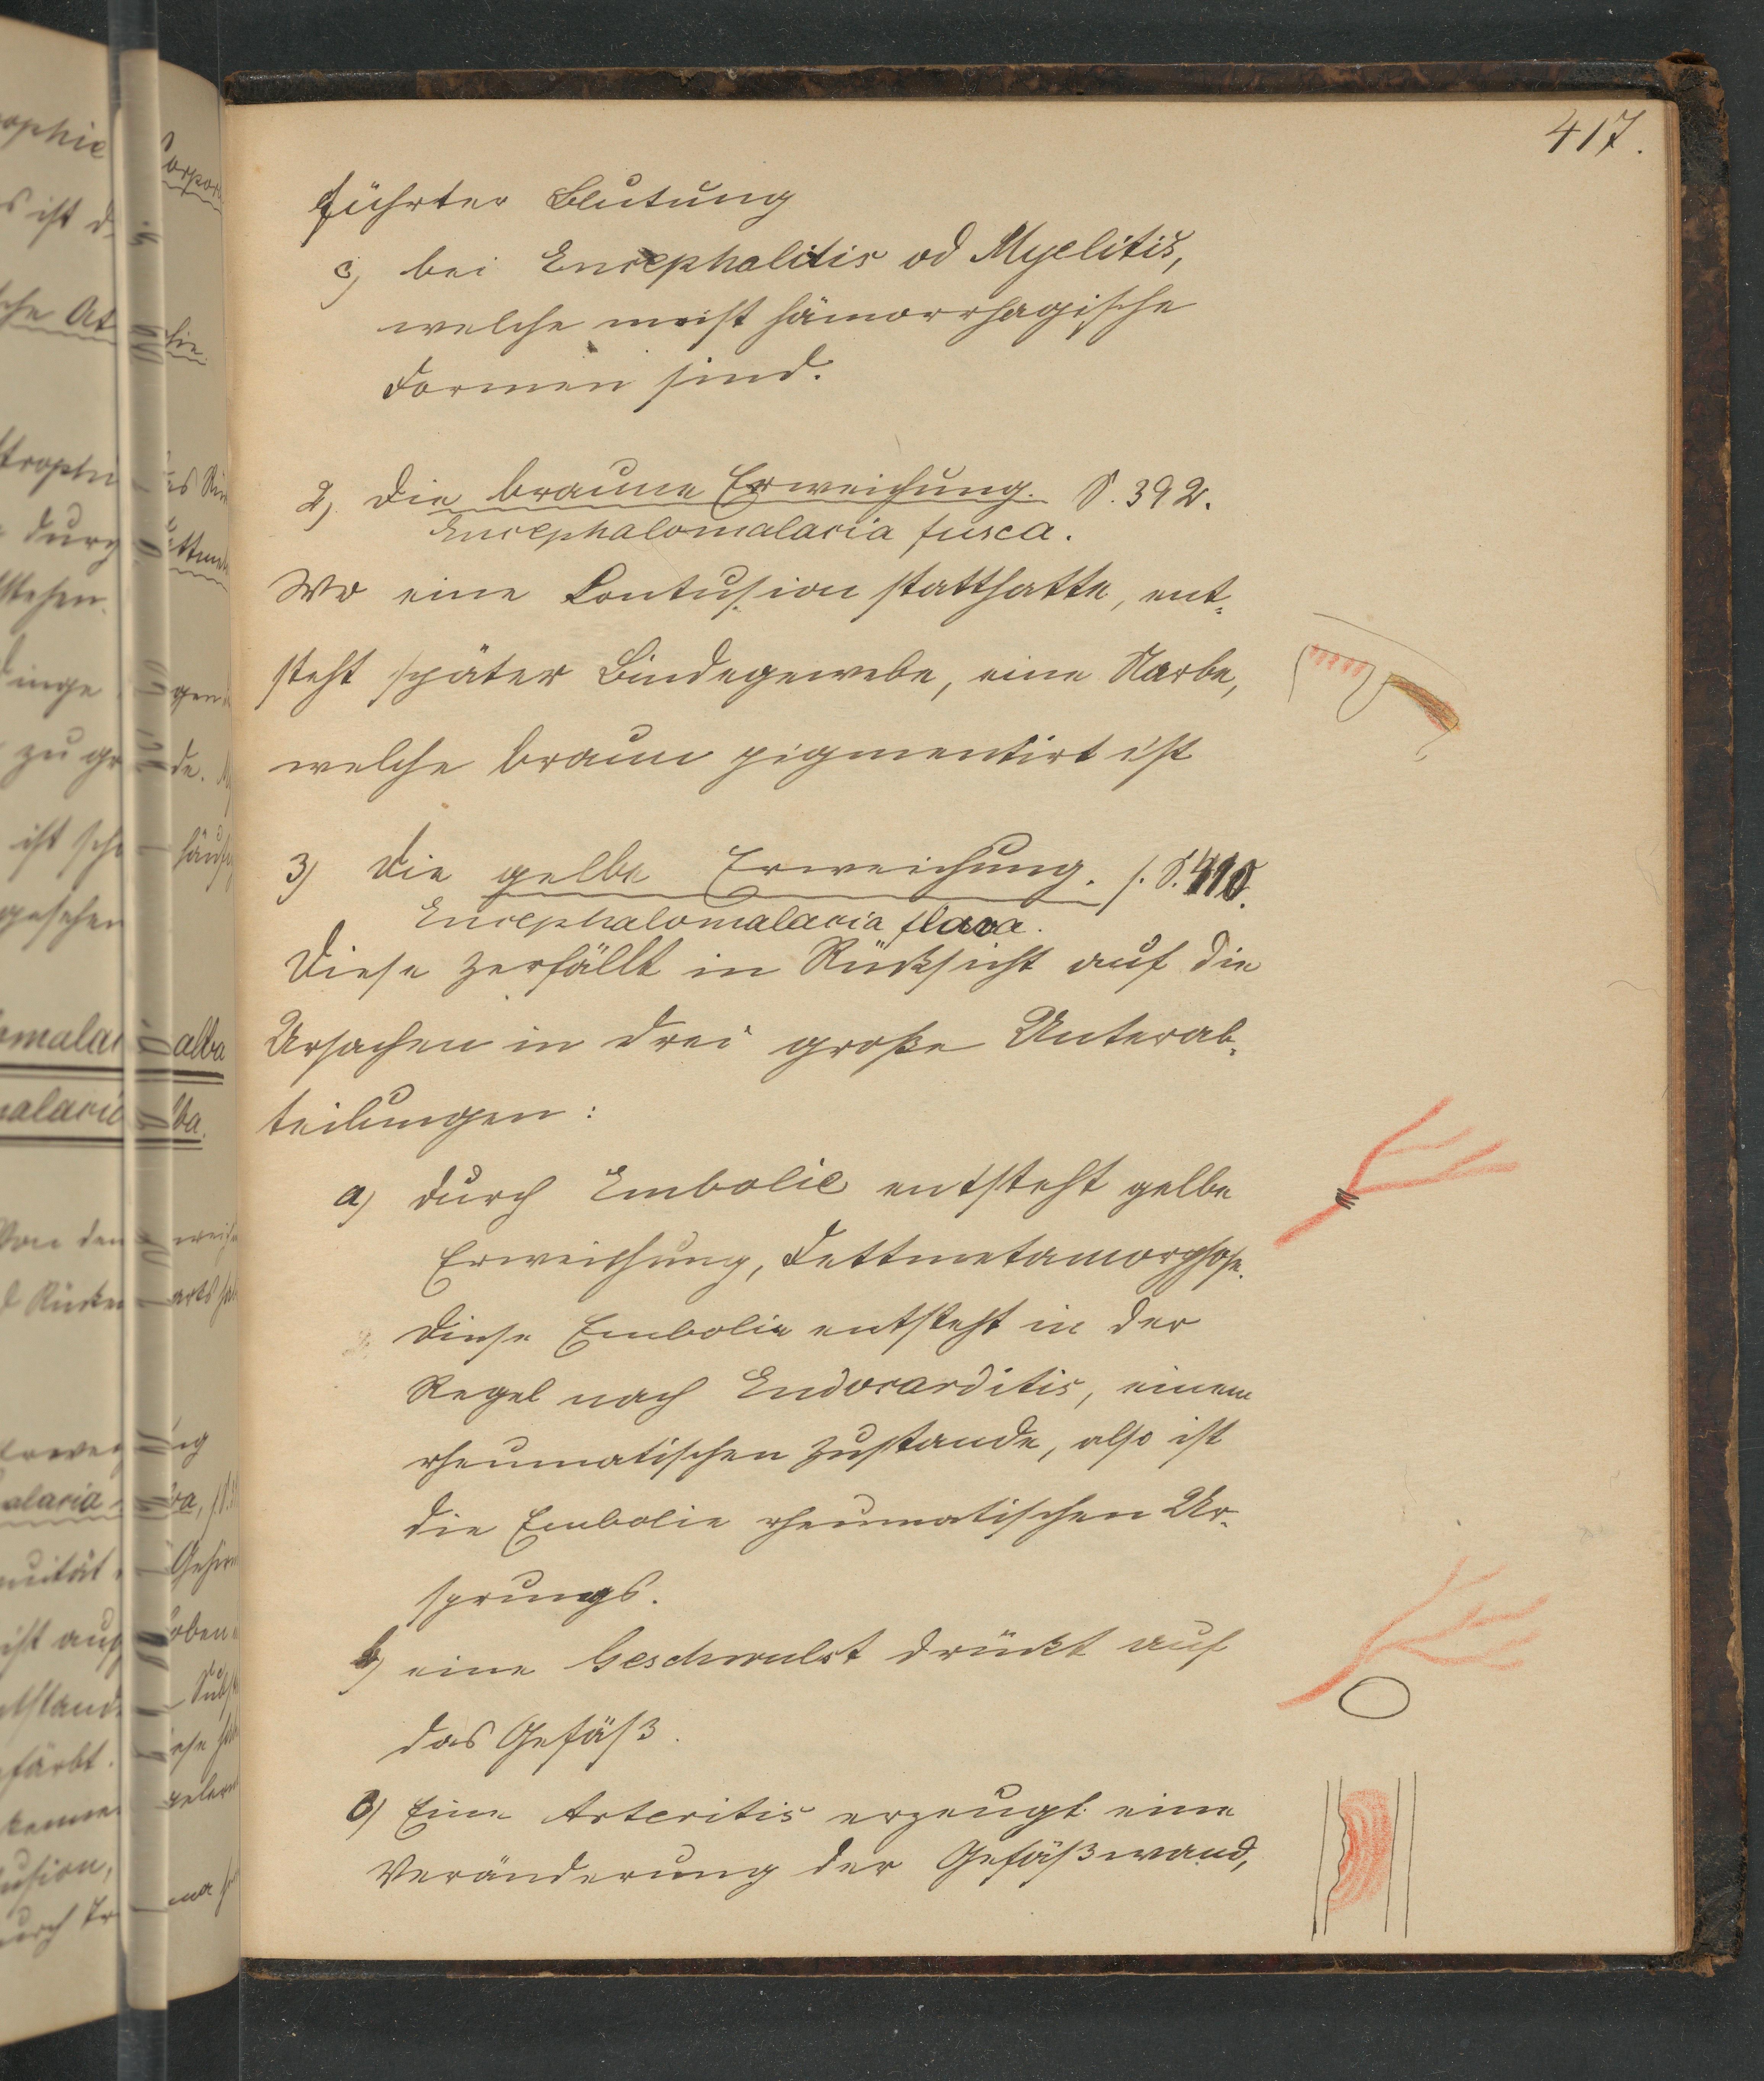 417.
führter Blutung
c) bei Encephalitis od Myelitis,
welche meist hämorrhagische
Formen sind.
2) Die braune Erweichung. S. 392.
Encephalomalacia fusca.
Wo eine Contusion statthatte, ent-
steht später Bindegewebe, eine Narbe,
welche braun pigmentirt ist
3) Die gelbe Erweichung. s. S. 410.
Encephalomalacia flava.
Diese zerfällt in Rücksicht auf die
Ursachen in drei große Unterab-
teilungen:
a) durch Embolie entsteht gelbe
Erweichung, Fettmetamorphose.
Diese Embolie entsteht in der
Regel nach Endocarditis, einem
rheumatischen Zustande, also ist
die Embolie rheumatischen Ur-
sprungs.
b) eine Geschwulst drückt auf
das Gefäß.
c) Eine Arteritis erzeugt eine
Veränderung der Gefäßwand,